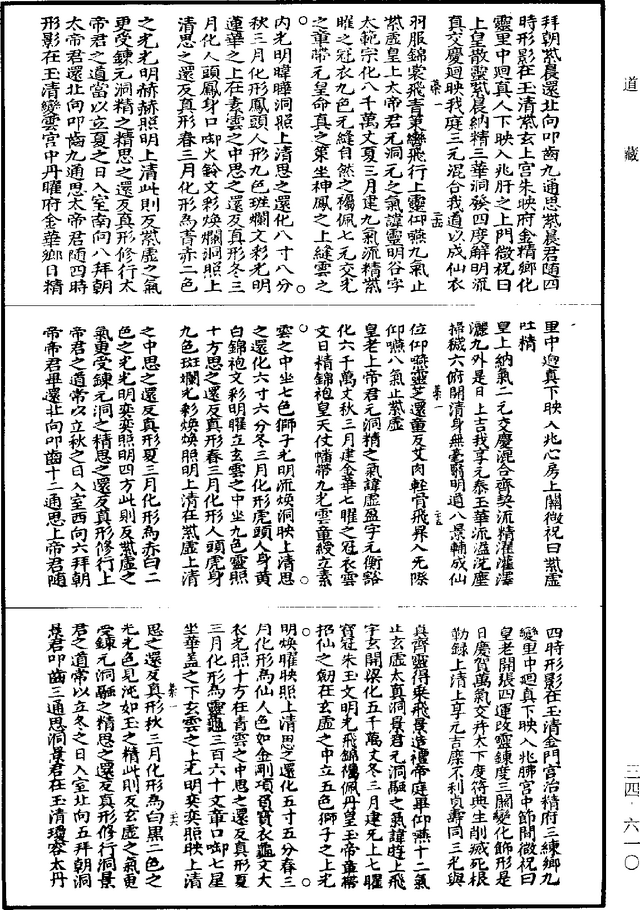 道藏
拜朝紫晨還北向叩齒九通思紫晨君隨四
時形影在玉清紫玄上宮朱映府金精鄉化
靈里中迴真人下映入兆肝之上門微祝曰
上皇散靈紫晨納精三華洞發四度解明流
真交慶迴映我庭三元混合我道以成仙衣
羽服錦裳飛青策轡飛行上靈仰嚥九氣止
紫虛皇上太帝君元洞元之氣諱靈明谷字
太範宗化八千萬丈夏三月建九氣流精紫
曜之冠衣九色元縫自然之襡佩七元交光
之章帶元皇命真之策坐神鳳之上縫雲之
內光明暐曄洞照上清思之還化八寸八分
秋三月化形鳳頭人形九色班爛文彩光明
蓮華之上在素雲之中思之還反真形冬三
月化人頭鳳身口啣火鈴文彩煥爛洞照上
清思之還反真形春三月化形為青赤二色
之光光明赫赫照明上清此則反紫虛之氣
更受鍊元洞精之精思之還反真形修行太
帝君之道當以立夏之日入室南向八拜朝
太帝君還北向叩齒九通思太帝君隨四時
形影在玉清變雲宮中丹曜府金華鄉日精
里中迴真下映入兆心房上關微祝曰紫虛
吐精
皇上納氣二元交慶混合齊契流精濯灌澤
灑九外是日上吉我享元泰玉華流溢洗塵
掃穢六府開清身無毫翳明道八景輔成仙
位仰嚥靈芝還童反艾肉輕骨飛昇入无際
仰嚥八氣止紫虛
皇老上帝君元洞精之氣諱虛盈字元衡豁
化六千萬丈秋三月建金華七曜之冠衣雲
文日精錦袍皇天仗幡帶九光雲童綬立素
雲之中坐七色獅子光明流煥洞映上清思
之還化六寸六分冬三月化形虎頭人身黃
白錦袍文彩明曜立玄雲之中坐九色靈照
十方思之還反真形春三月化形人頭虎身
九色斑爛光彩煥煥照明上清在紫虛上清
之中思之還反真形夏三月化形為赤白二
色之光光明奕奕照明四方此則反紫虛之
氣更受鍊元洞之精思之還反真形修行上
帝君之道常以立秋之日入室西向六拜朝
帝帝君畢還北向叩齒十二通思上帝君隨
四時形影在玉清金門宮治精府三練鄉九
變里中迴真下映入兆肺宮中節間微祝曰
皇老開張四運改靈鍊度三關變化飾形是
日慶賀萬氣交并太下度符典生削滅死根
勒錄上清上享元吉靡不利貞壽同三光與
真齊靈得乘飛景造禮帝庭畢仰嚥十二氣
止玄虛太真洞景君元洞融之氣諱時上飛
字玄開渠化五千萬丈冬三月建元上七曜
寶冠朱玉文明光飛錦襡佩丹皇玉帝童帶
招仙之劒在玄虛之中立五色獅子之上光
明煥曜映照上清思之還化五寸五分春三
月化形為仙人色如金剛項負寶衣龜文大
衣光照十方在青雲之中思之還反真形夏
三月化形為靈龜三百六十文章口啣七星
坐華蓋之下玄雲之上光明奕奕照映上清
思之還反真形秋三月化形為白黑二色之
光光色見沌如玉之精此則反玄虛之氣更
受鍊元洞融之精思之還反真形修行洞景
君之道常以立冬之日入室北向五拜朝洞
景君叩齒三通思洞景君在玉清瓊容太丹
三四·六一〇